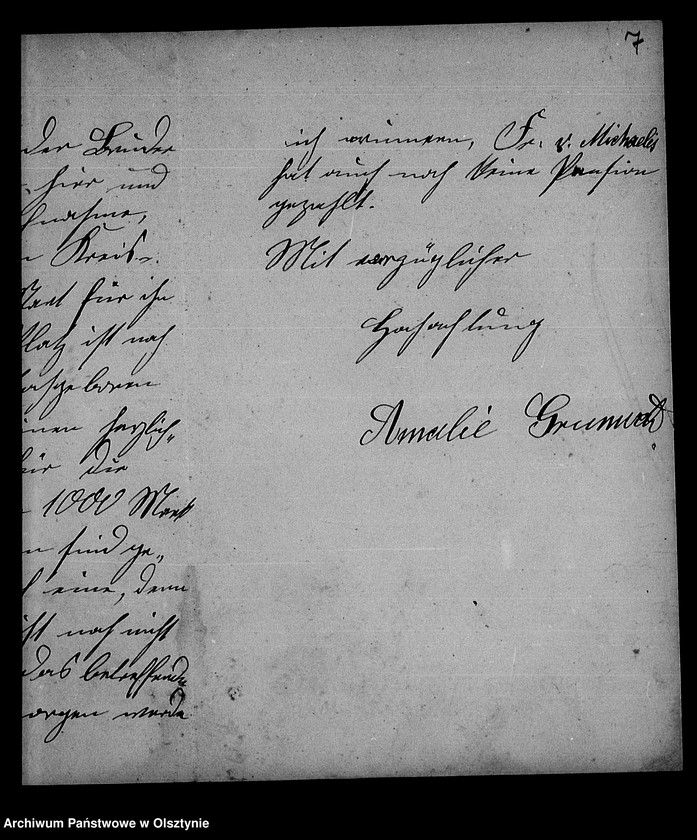 7
der Bruder
hier und
nahme,
Kreis-
für ihn
Platz ist noch
geboren
herzlich
für die
1000 Mark
n sind ge-
eine, denn
ist noch nicht
das betreffende
orgen werde
ich erinnern, Fr. v. Michaelis
hat auch noch keine Pension
gezahlt.
Mit vorzüglicher
Hochachtung
Amalie Grunwald
Archiwum Państwowe w Olsztynie